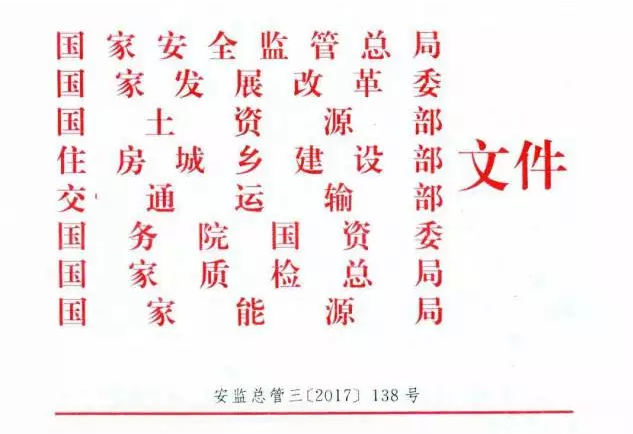 国家安全监管总局
国家发展改革委
国土资源部
住房城乡建设部
交通运输部
国务院国资委
国家质检总局
国家能源局
文件
安监总管三〔2017〕138号